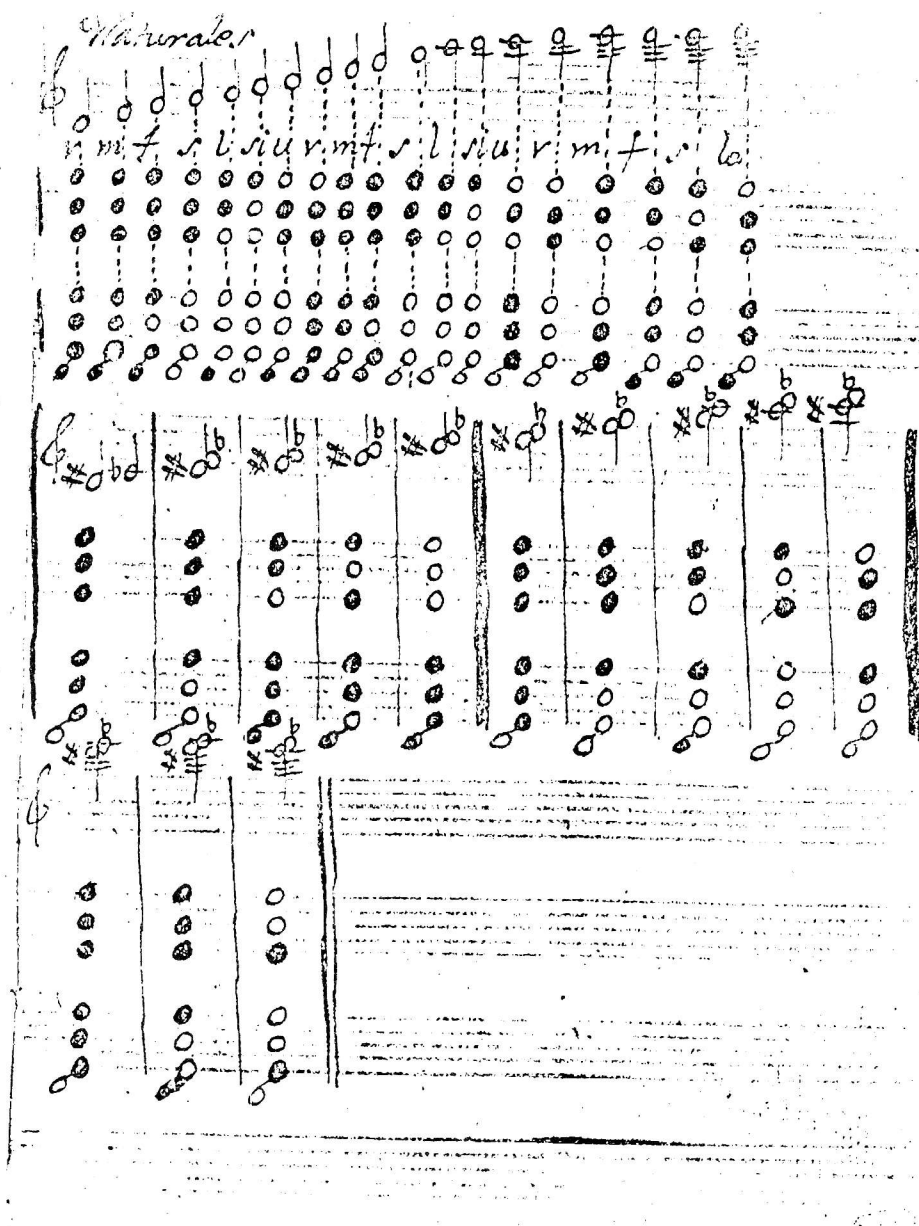 Naturales
r m f s l si u r m f s l si u r m f s la